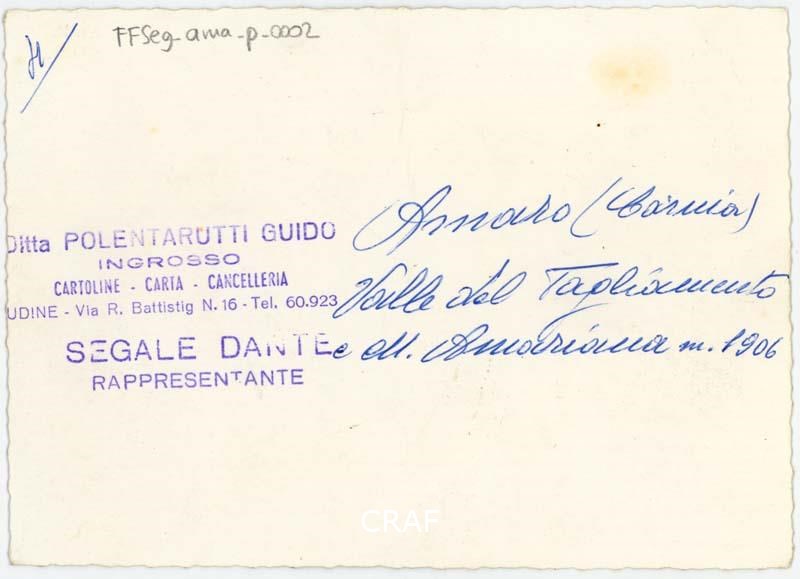 FFSeg_ama_p_0002
Ditta POLENTARUTTI GUIDO
INGROSSO
CARTOLINE - CARTA - CANCELLERIA
UDINE - Via R. Battistig N. 16 - Tel. 60.923
SEGALE DANTE
RAPPRESENTANTE
Amaro (Carnia)
Valle del Tagliamento
e M. Amariana m. 1906
CRAF